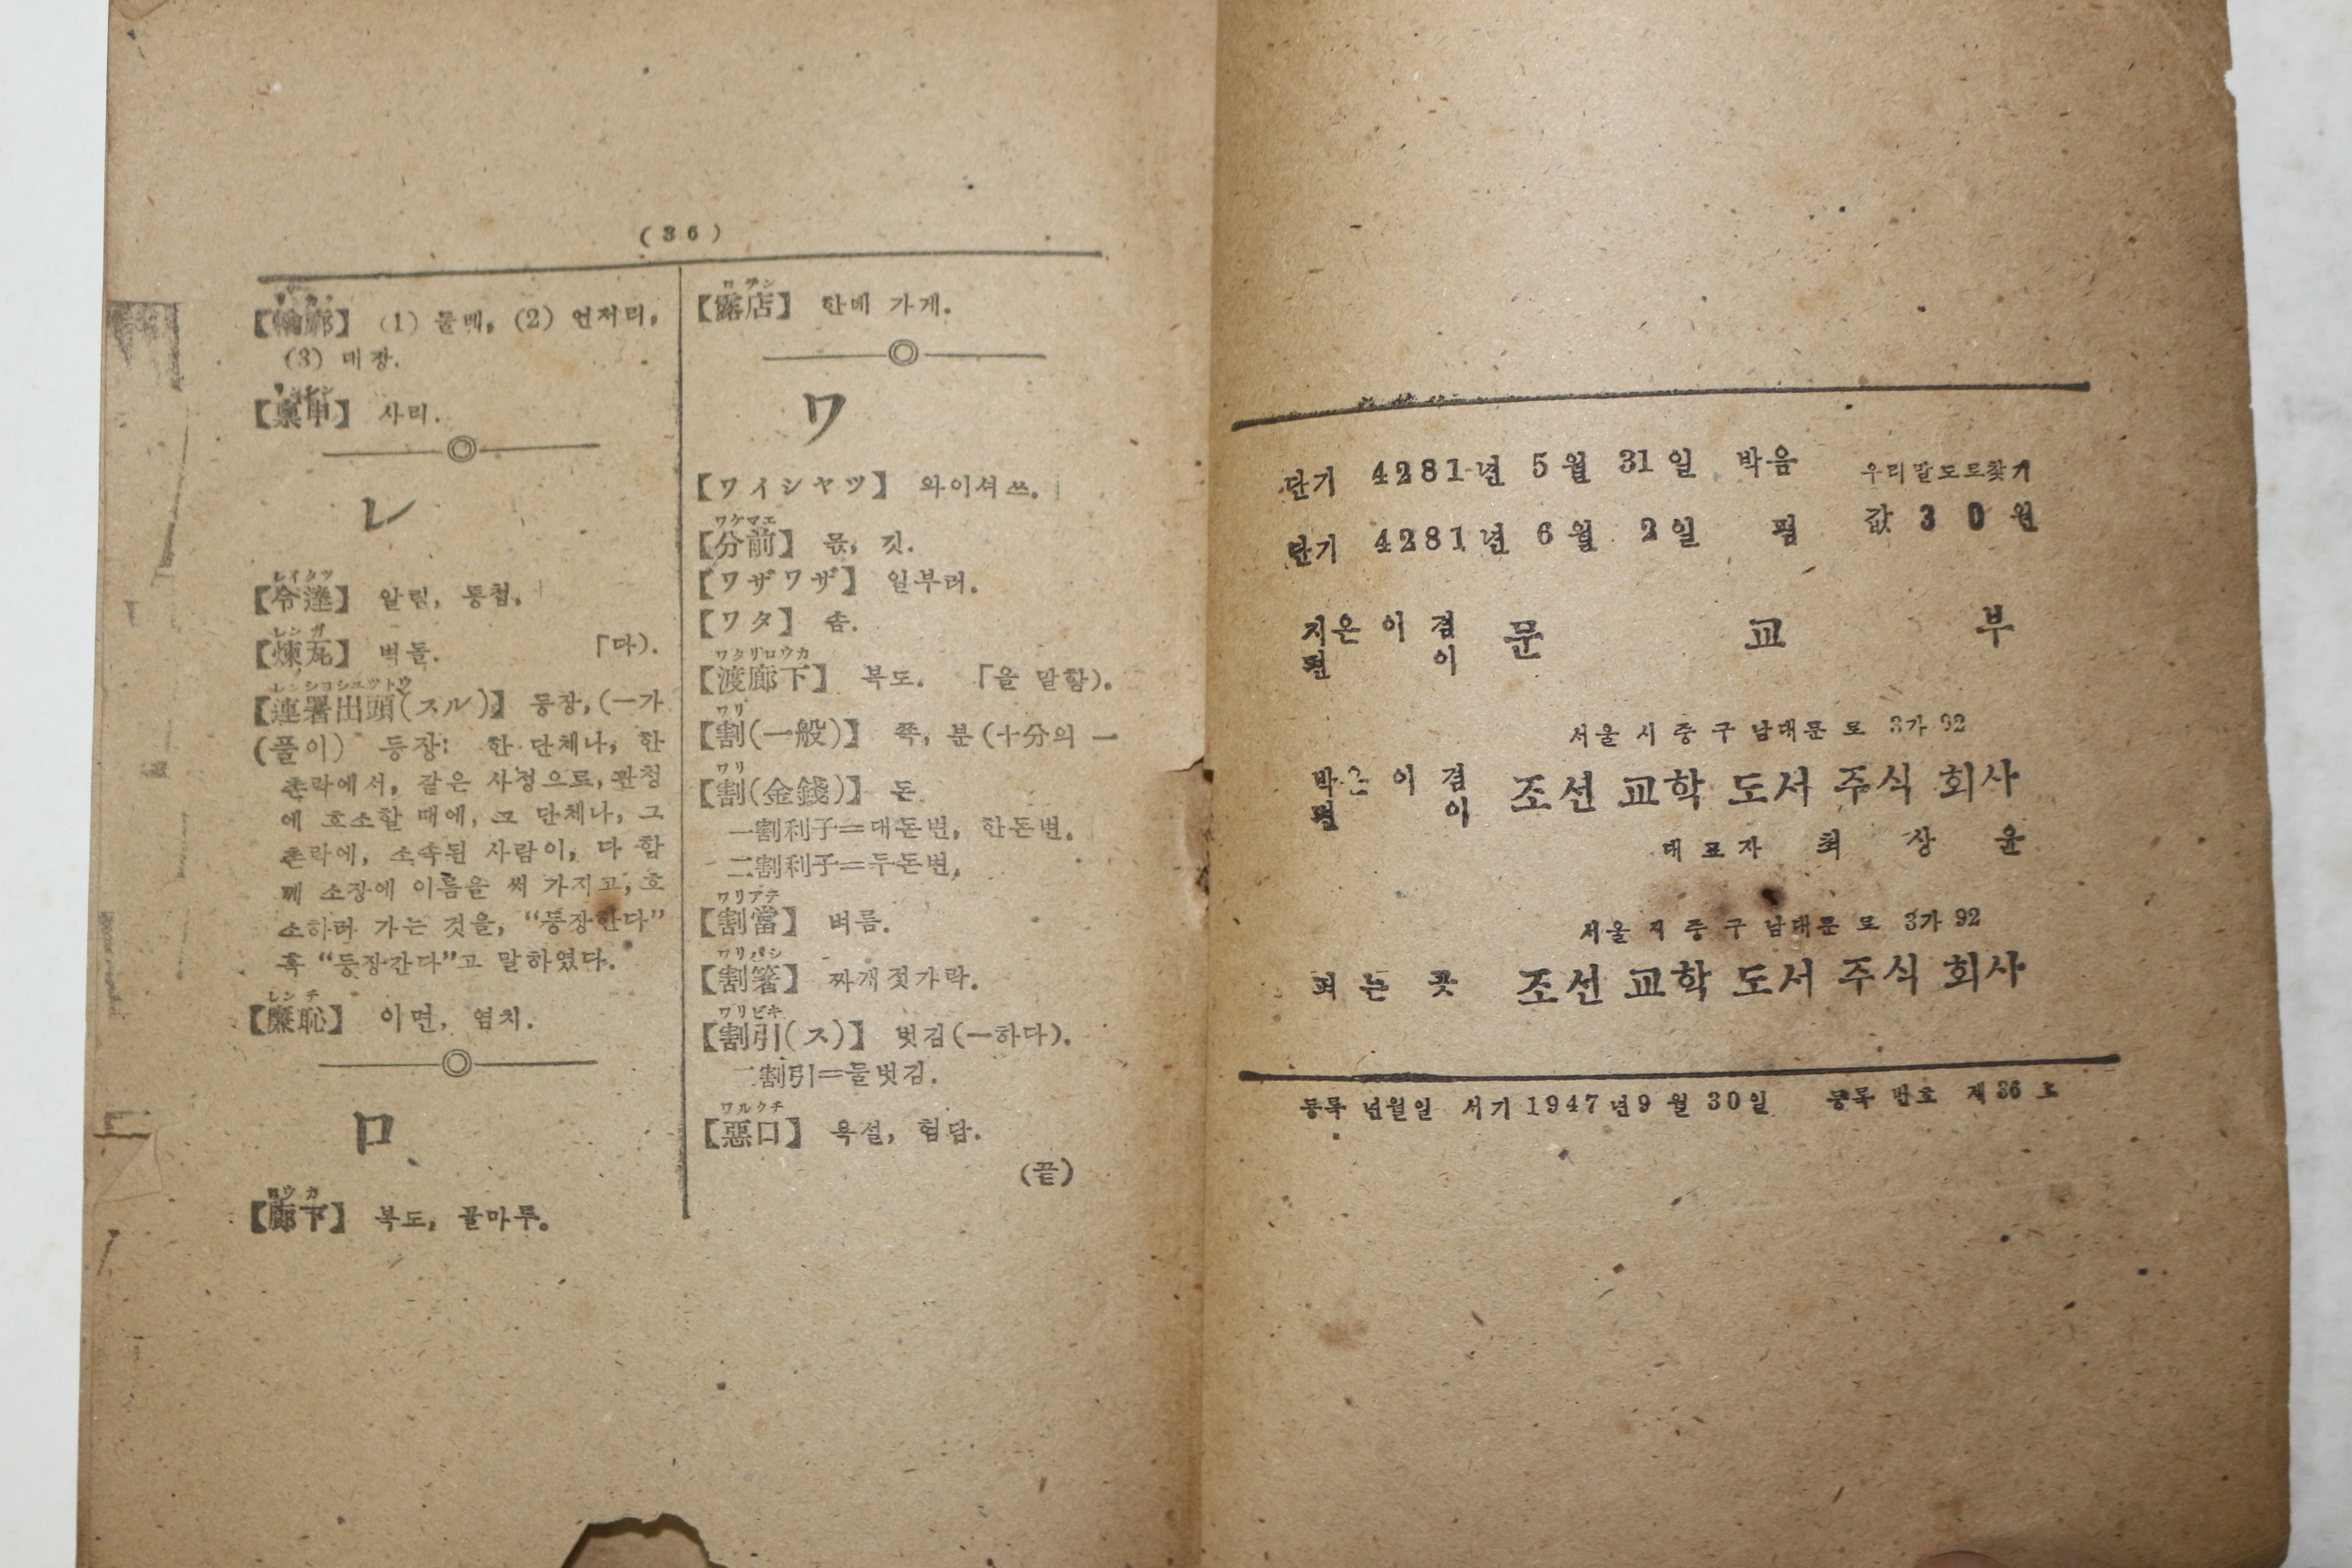 (36)
【輪廓】 (1) 둘레, (2) 언저리,
(3) 대장.
【稟申】 사리.
レ
レイタツ
【令達】 알림, 통첩.
レンガ
【煉瓦】 벽돌. 「다).
レンシヨシユツトウ
【連署出頭(スル)】 등장,(一가
(풀이) 등장: 한 단체나, 한
촌락에서, 같은 사정으로, 관청
에 호소할 때에, 그 단체나, 그
촌락에, 소속된 사람이, 다 함
께 소장에 이름을 써 가지고, 호
소하러 가는 것을, “등장한다”
혹 “등장간다”고 말하였다.
レンチ
【廉恥】 이면, 염치.
ロ
ロウカ
【廊下】 복도, 골마루.
ロテン
【露店】 한데 가게.
ワ
【ワイシヤツ】 와이셔쓰.
ワケマエ
【分前】 몫, 깃.
【ワザワザ】 일부러.
【ワタ】 솜.
ワタリロウカ
【渡廊下】 복도. 「을 말함).
ワリ
【割(一般)】 쪽, 분(十分의 一
ワリ
【割(金錢)】 돈
一割利子＝대돈변, 한돈변.
二割利子＝두돈변,
ワリアテ
【割當】 벼름.
ワリバシ
【割箸】 짜개젓가락.
ワリビキ
【割引(ス)】 벗김(一하다).
二割引＝둘벗김.
ワルクチ
【惡口】 욕설, 험담.
(끝)
단기 4281년 5월 31일 박음
단기 4281년 6월 2일 펌
우리말도로찾기
값 30원
지은이 겸
편 이
문 교 부
서울 시 중 구 남대문 로 3가 92
박은이 겸
편 이
조선 교학 도서 주식 회사
대표자 최 상 윤
서울 시 중 구 남대문 로 3가 92
펴는 곳 조선 교학 도서 주식 회사
등록 년월일 서기 1947년9월 30일 등록 번호 제36호